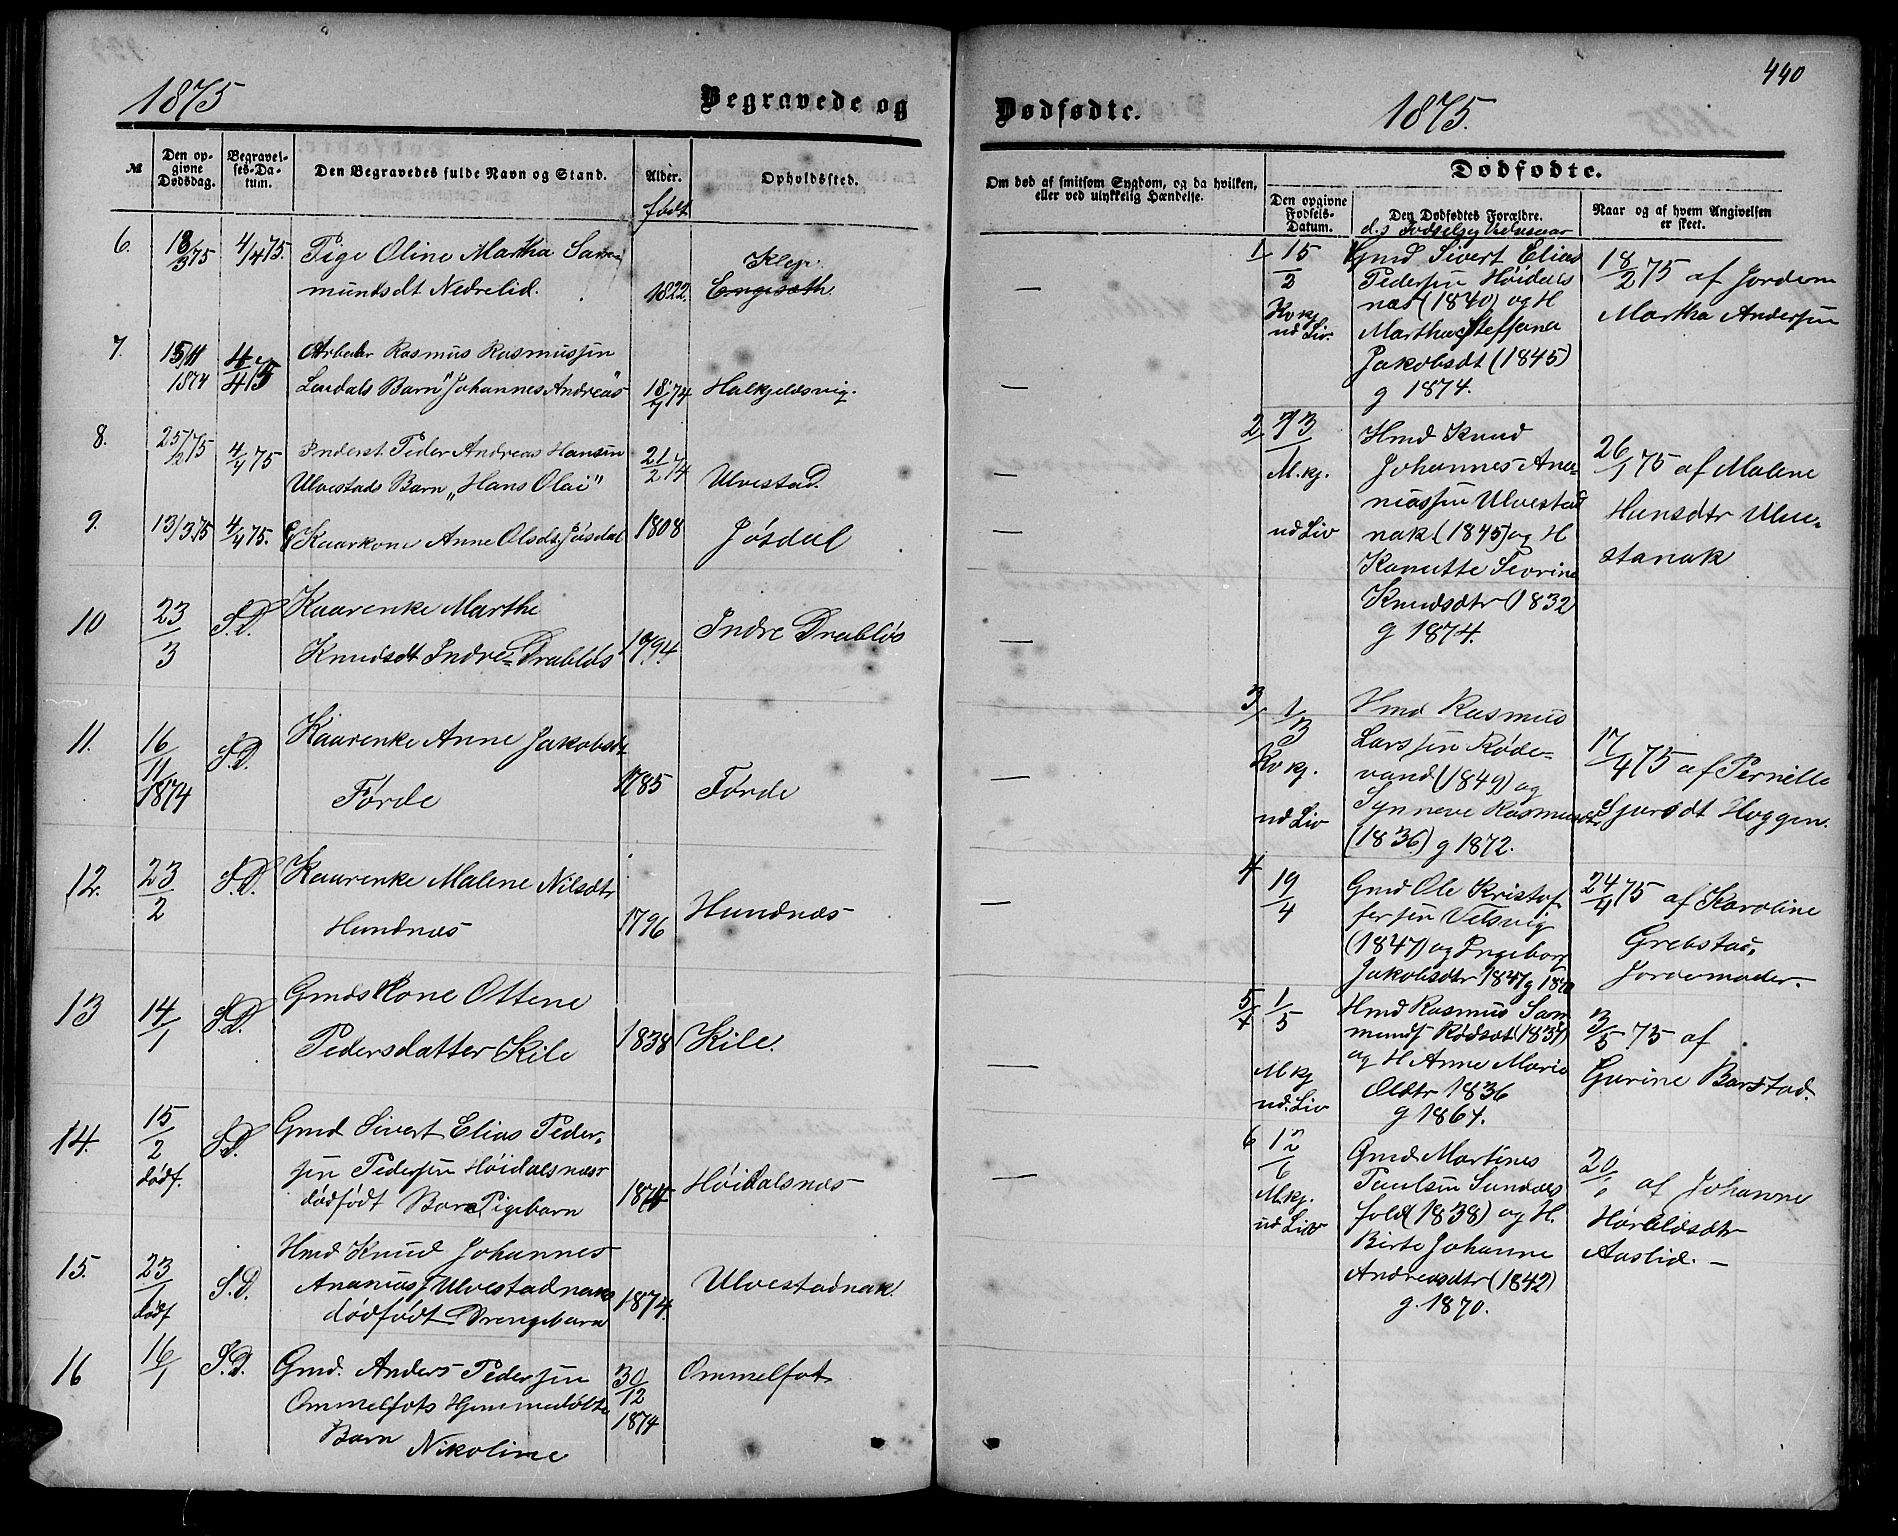 1875
Begravede og
№
Den opgivne Dødsdag.
Begravelses-Datum.
Den Begravedes fulde Navn og Stand.
Alder.
født
Opholdssted.
6.
18/3 75
4/4 75.
Pige Oline Martha Sam-
mundsdt Nedrelid.
1822.
Klep.
Engesæth.
7.
15/11
1874
4/4 75
Arbeider Rasmus Rasmussen
Lerdals Barn "Johannes Andreas"
18/7 74
Halkjelsvig.
8.
25/2 75
4/4 75
Inderst Peder Andreas Hansen
Ulvestads Barn „Hans Olai"
21/2 74
Ulvestad.
9.
13/3.75
4/4 75.
Kaarkone Anne Olsdt Jøsdal
1808
Jøsdal
10
23/3
S.D.
Kaarenke Marthe
Knudsdt Indre-Drabløs
1794.
Indre Drabløs
11.
16/11
1874
S.D.
Kaarenke Anne Jakobsdt
Førde
1785
Førde
12.
23/2
S.D.
Kaarenke Malene Nilsdtr
Hundnæs
1796
Hundnæs
13
14/1
S.D.
Gmds Kone Ottene
Pedersdatter Kile
1838
Kile.
14.
15/2
dødf.
S.D.
Gmd Sivert Elias Peder-
sen Pedersen Høidalsnæs
dødfødt Barn Pigebarn
1875
Høidalsnæs
15.
23/1
dødf
S.D.
Hmd Knud Johannes
Ananiasf Ulvestadnaks
dødfødt Drengebarn
1874.
Ulvestadnak.
16
16/1
S.D.
Gmd. Anders Pedersen
Ommelfots Hjemmedøbte
Barn Nikoline
30/12
1874
Ommelfot
440
Dødfødte.
1875.
Om død af smitsom Sygdom, og da hvilken,
eller ved ulykkelig Hændelse.
Dødfødte.
Den opgivne Fødsels-Datum.
Den Dødfødtes Forældre.
Naar og af hvem Angivelsen
er skeet.
1
15/2
Kv kj
ud Liv.
Gmd Sivert Elias
Pedersen Høidals
næs (1840) og H
Martha Steffena
Jakobsdt (1845)
g 1874.
18/2 75 af Jordem
Martha Andersen
2
23/1
M.kj.
ud Liv
Hmd Knud
Johannes Ana-
niassen Ulvestad
nak (1845) og H
Kanutte Sevrine
Knudsdtr (1832)
g 1874.
26/1 75 af Malene
Hansdtr Ulve-
stanak
3
1/3
Kv kj.
ud Liv
Hmd Rasmus
Larssen Røde-
vand (1849) og
Synneve Rasmusdtr
(1836) g 1872.
17/4 75 af Pernille
Sjursdt Huggen.
4
19/4
Gmd Ole Kristof
fersen Velsvig
(1847) og Ingeborg
Jakobsdtr 1847 g 1870
24/4 75 af Karoline
Grebstad,
Jordemoder.
5
1/5
M kj
ud. Liv
Hmd Rasmus Sam
mundf Rødsæt (1837)
og H Anne Marie
Olsdtr 1836
g 1864.
3/5 75 af
Gurine Barstad.
6
12/6
M.kj.
ud Liv
Gmd Martines
Paulsen Sundals
fold (1838) og H.
Birte Johanne
Andreasdtr (1842)
g. 1870.
20/6 af Johanne
Haraldsdtr
Aaslid. –